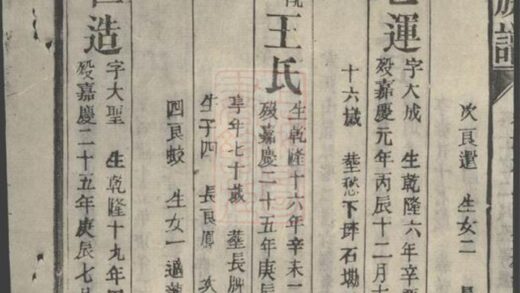 族譜
次良還 生女二
運
字大成 生乾隆六年辛
歿嘉慶元年丙辰十二月
十六歲 葬愁下坪石
王氏
生乾隆十六年辛未
歿嘉慶二十五年庚辰
享年七十歲 葬長
生子四 長良鳳 次
四良蛟 生女一 適
造
字大聖 生乾隆十九年
歿嘉慶二十五年庚辰七